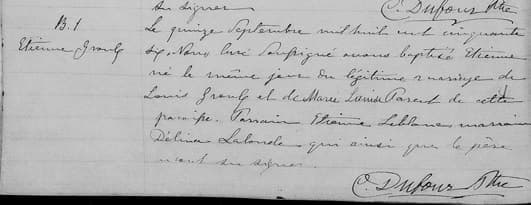 su signer
C. Dufour Ptre
B. 1
Etienne Groulx
Le quinze Septembre mil huit cent cinquante
six Nous Curé soussigné avons baptisé Etienne
né le même jour du légitime mariage de
Louis Groulx et de Marie Louise Parent de cette
paroisse. Parrain Etienne Leblanc marraine
Délina Lalonde qui ainsi que le père
n'ont su signer.
C. Dufour Ptre